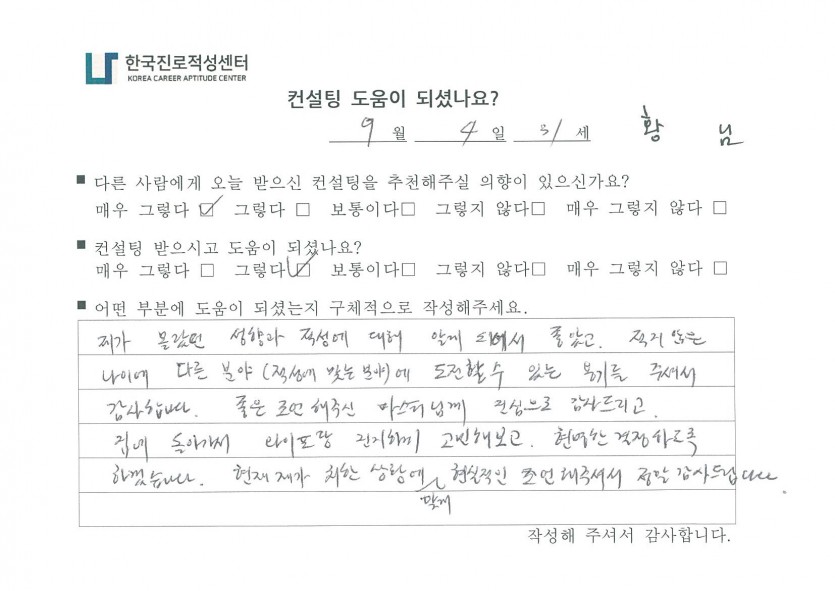 한국진로적성센터
KOREA CAREER APTITUDE CENTER
컨설팅 도움이 되셨나요?
9 월 4 일 31 세 황 님
■ 다른 사람에게 오늘 받으신 컨설팅을 추천해주실 의향이 있으신가요?
매우 그렇다 ☑ 그렇다 □ 보통이다□ 그렇지 않다□ 매우 그렇지 않다 □
■ 컨설팅 받으시고 도움이 되셨나요?
매우 그렇다 □ 그렇다☑ 보통이다□ 그렇지 않다□ 매우 그렇지 않다 □
■ 어떤 부분에 도움이 되셨는지 구체적으로 작성해주세요.
제가 몰랐던 성향과 적성에 대해 알게 되어서 좋았고. 적지 않은
나이에 다른 분야 (적성에 맞는 분야)에 도전할 수 있는 용기를 주셔서
감사합니다. 좋은 조언 해주신 마스터님께 진심으로 감사드리고.
집에 돌아가서 와이프랑 진지하게 고민해보고. 현명한 결정 하도록
하겠습니다. 현재 제가 처한 상황에 맞게 현실적인 조언 해주셔서 정말 감사드립니다.
작성해 주셔서 감사합니다.